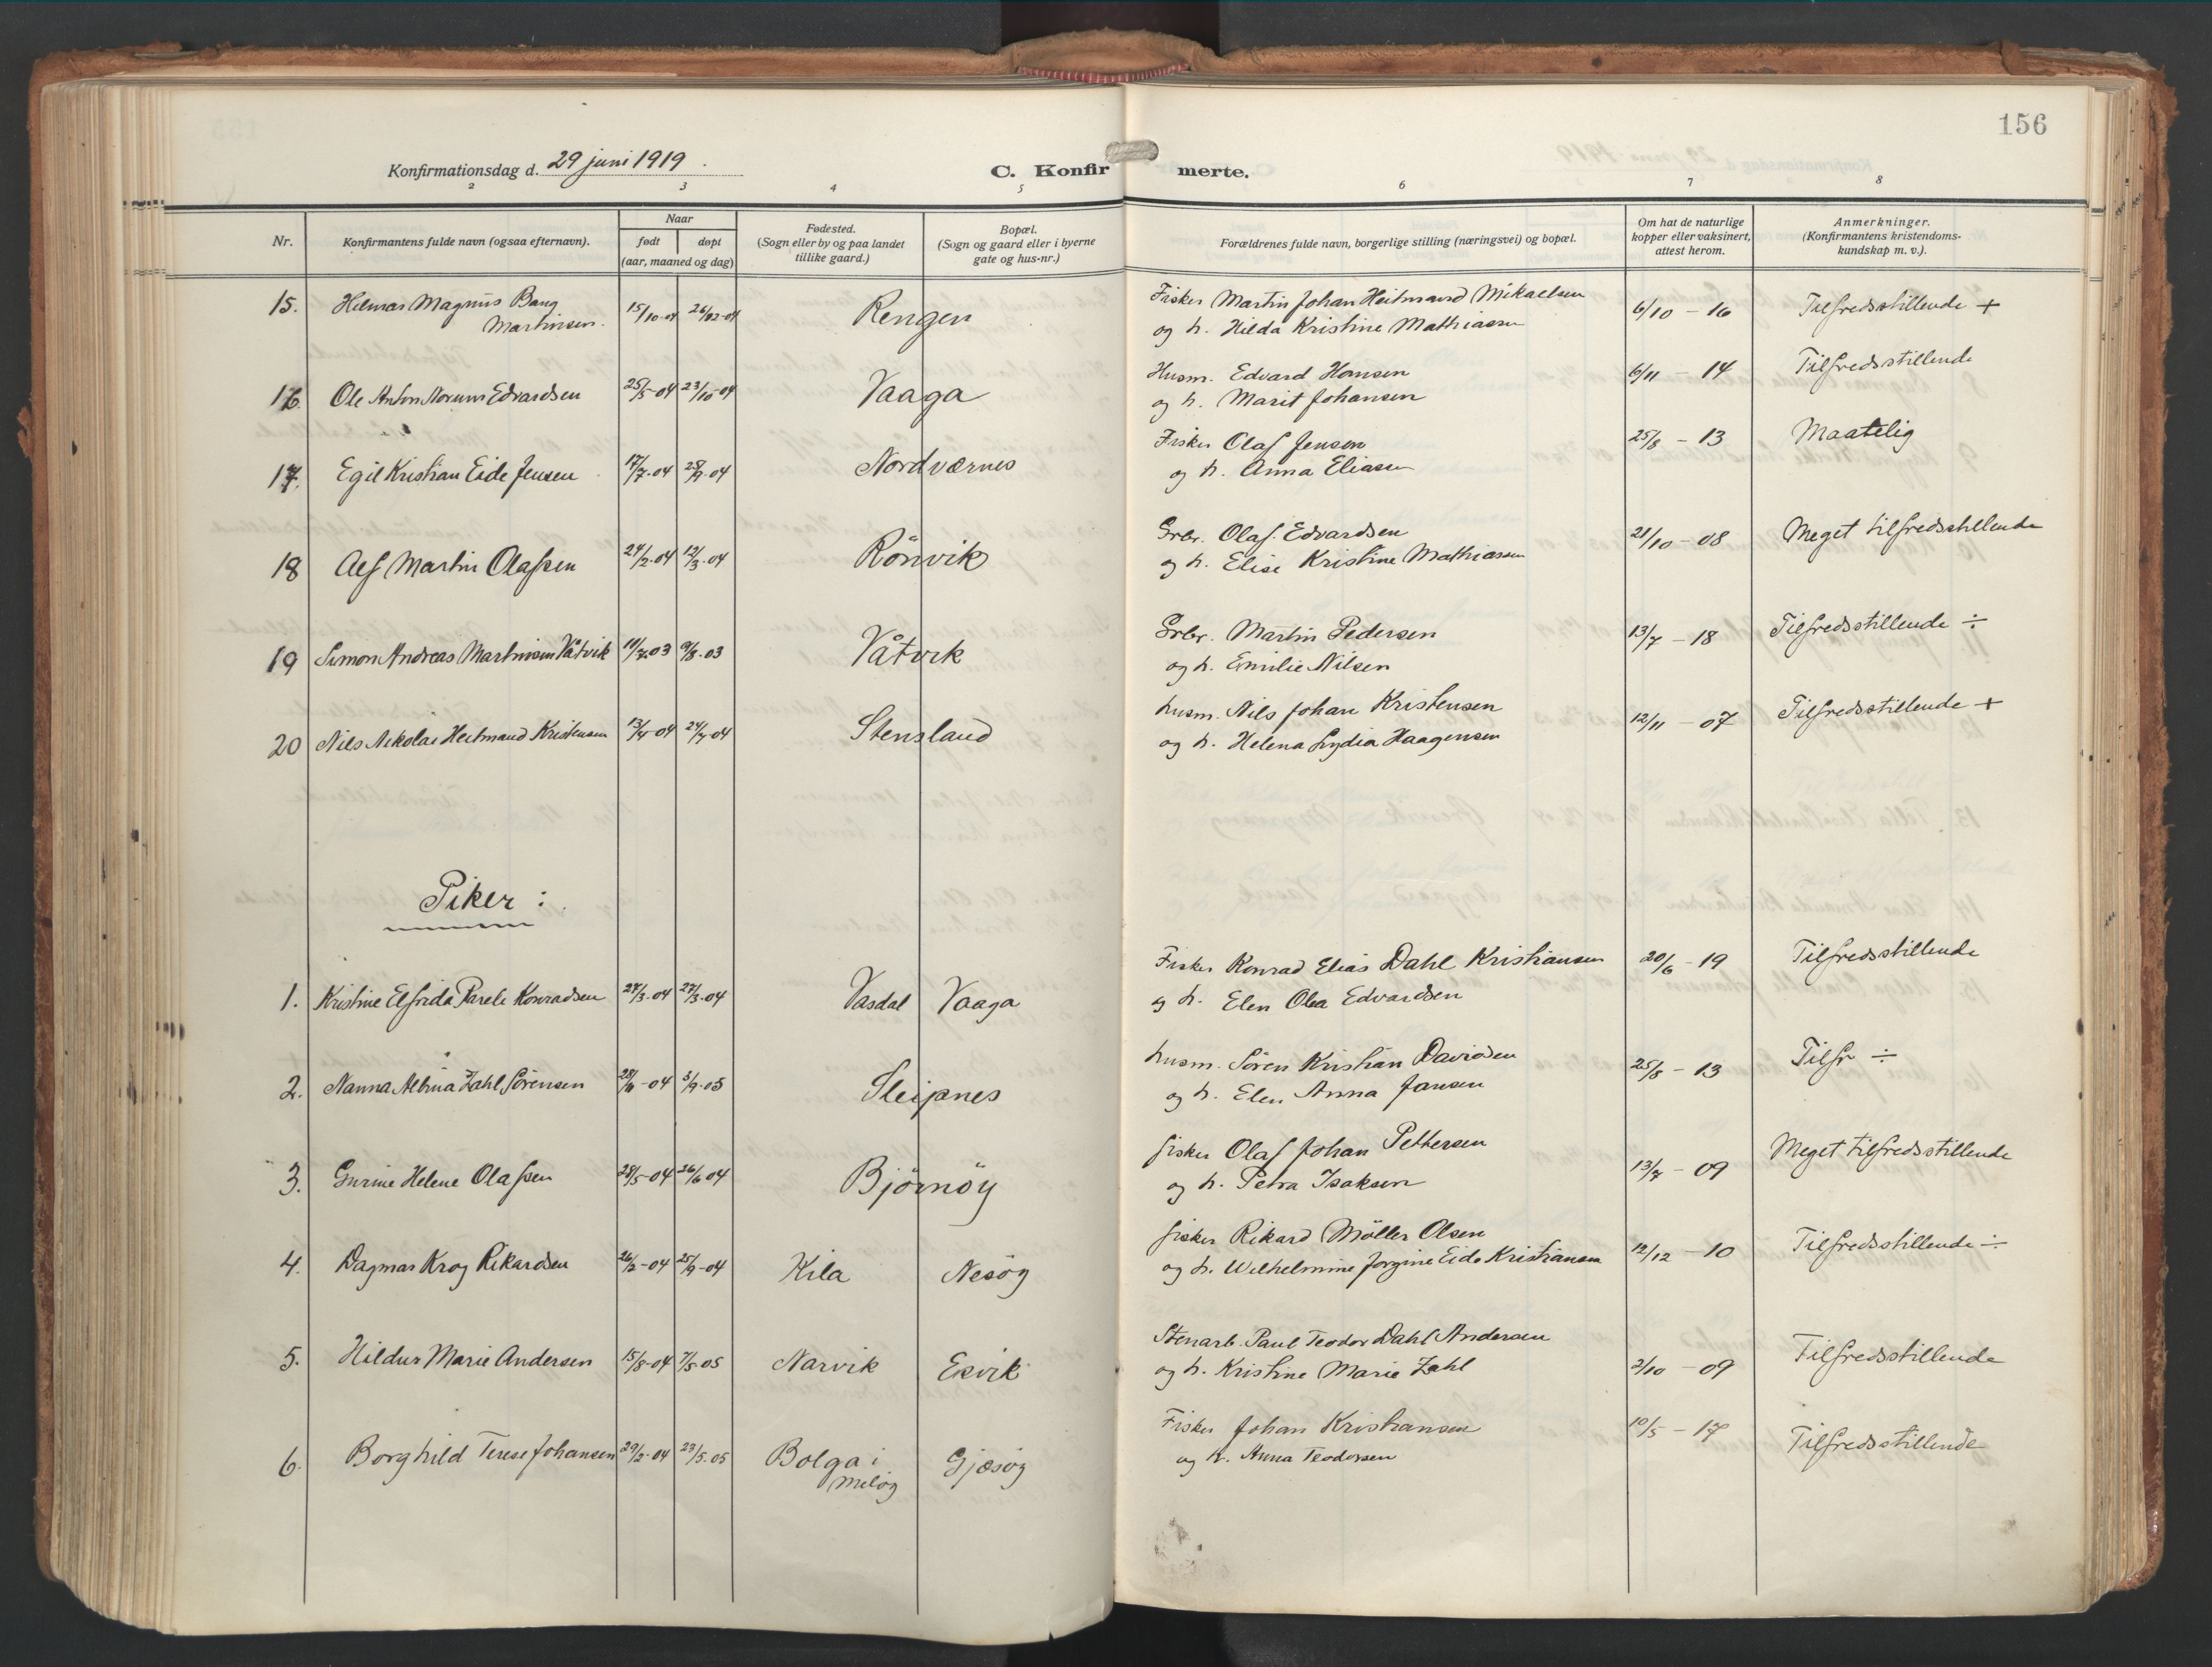 156
Konfirmationsdag d. 29 juni 1919.
C. Konfirmerte.
2 3 4 5 6 7 8
Nr. Konfirmantens fulde navn (ogsaa efternavn). Naar født døpt (aar, maaned og dag) Fødested. (Sogn eller by og paa landet tillike gaard.) Bopæl. (Sogn og gaard eller i byerne gate og hus-nr.) Forældrenes fulde navn, borgerlige stilling (næringsvei) og bopæl. Om hat de naturlige kopper eller vaksinert, attest herom. Anmerkninger. (Konfirmantens kristendoms-kundskap m. v.).
15. Hilmar Magnus Bang 15/10-04 26/12-04 Rengen Fisker Martin Johan Heitmand Mikaelsen 6/10 - 16 Tilfredsstillende +
Martinsen. og h. Hilda Kristine Mathiassen
16. Ole Anton Norum Edvardsen 25/5-04 23/10-04 Vaaga Husm. Edvard Hansen 6/11 - 14 Tilfredsstillende
og h. Marit Johansen
17. Egil Kristian Eide Jensen 17/7-04 25/9-04 Nordværnes Fisker Olaf Jensen 25/8 - 13 Maatelig
og h. Anna Eliasen
18 Alf Martin Olafsen 24/2-04 12/3-04 Rönvik Grbr. Olaf Edvardsen 21/10-08 Meget tilfredsstillende
og h. Elise Kristine Mathiassen
19 Simon Andreas Martinsen Våtvik 11/7-03 9/8-03 Våtvik Grbr. Martin Pedersen 13/7 - 18 Tilfredsstillende ÷
og h. Emilie Nilsen
20 Nils Nikolai Heitmand Kristensen 13/4-04 24/7-04 Stensland husm. Nils Johan Kristensen 12/11 - 07 Tilfredsstillende +
og h. Helena Lydia Haagensen
Piker :
1. Kristine Elfrida Parele Konradsen 27/3-04 Vasdal Vaaga Fisker Konrad Elias Dahl Kristiansen 20/6 - 19 Tilfredsstillende
og h. Elen Olea Edvardsen
2. Nanna Albina Zahl Sörensen -04 3/9-05 Sleipnes husm. Sören Kristian Davidsen 25/8 - 13 Tilfr ÷
og h. Elen Anna Jansen
3. Gurine Helene Olafsen 28/5-04 26/6 04 Björnöy fisker Olaf Johan Pettersen 13/7 - 09 Meget tilfredsstillende
og h. Petra Isaksen
4. Dagmar Krog Rikardsen 26/2-04 25/9-04 Kila Nesöy fisker Rikard Möller Olsen 12/12 - 10 Tilfredsstillende ÷
og h. Wilhelmine Jorgine Eide Kristiansen
5. Hildur Marie Andersen 15/8-04 7/5 05 Narvik Esvik Stenarb. Paul Teodor Dahl Andersen 2/10 - 09 Tilfredsstillende
og h. Kristine Marie Zahl
6. Borghild Terese Johansen 29/2-04 23/5-05 Bolga i Gjæsöy Fisker Johan Kristiansen 10/5 - 17 Tilfredsstillende
Melöy og h. Anna Teodorsen